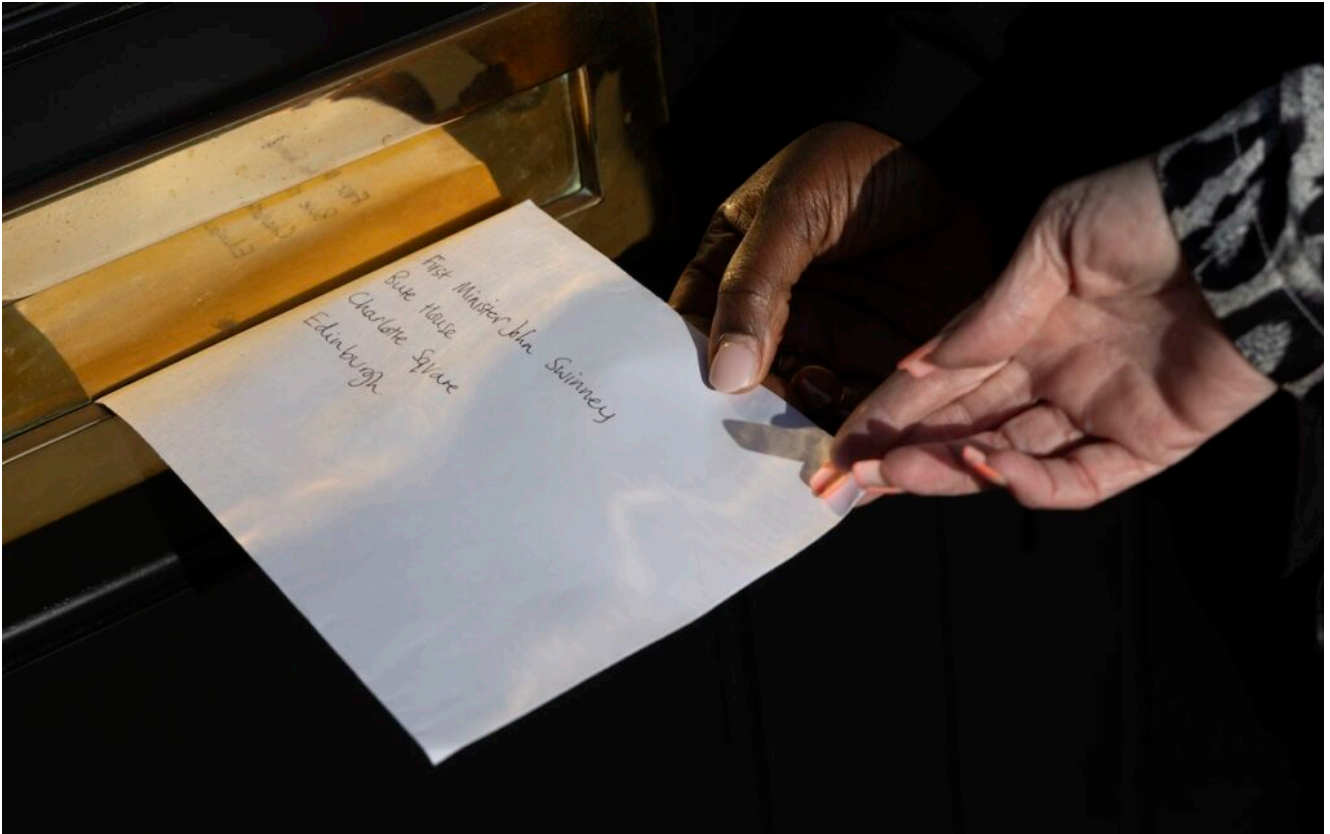 First Minister John Swinney
Bute House
Charlotte Square
Edinburgh